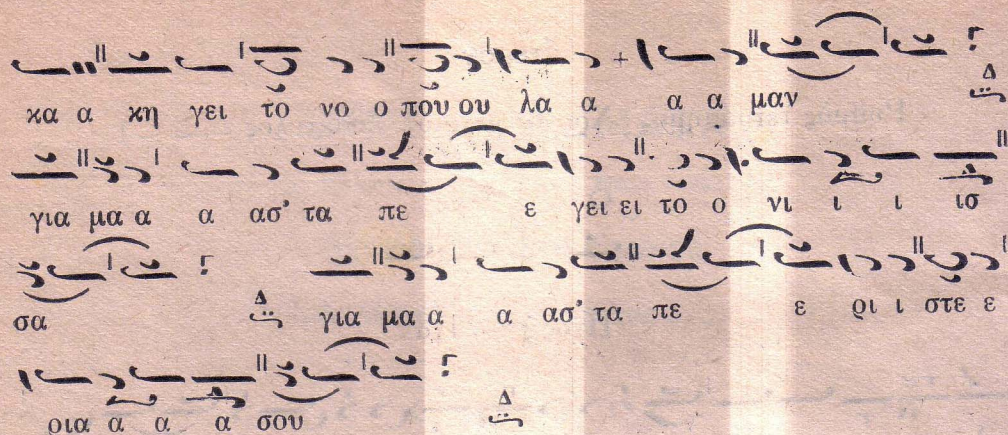 κα α κη γει το νο ο που ου λα α α α μαν Δ
για μα α α ασ’ τα πε ε γει ει το ο νι ι ι ισ
σα Δ για μα α α ασ’ τα πε ε ρι ι στε ε
ρια α α α σου Δ